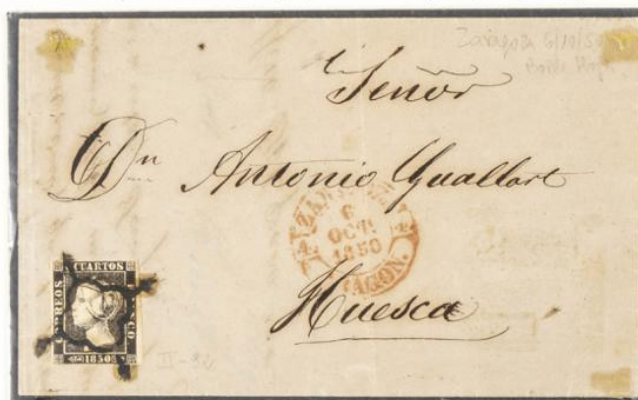 Zaragoza 6/10/50
Señor
Dn Antonio Guallart
ZARAGOZA
6
OCT.
1850
ARAGON.
Huesca
CUARTOS
CORREOS
FRANCO
1850
II-32